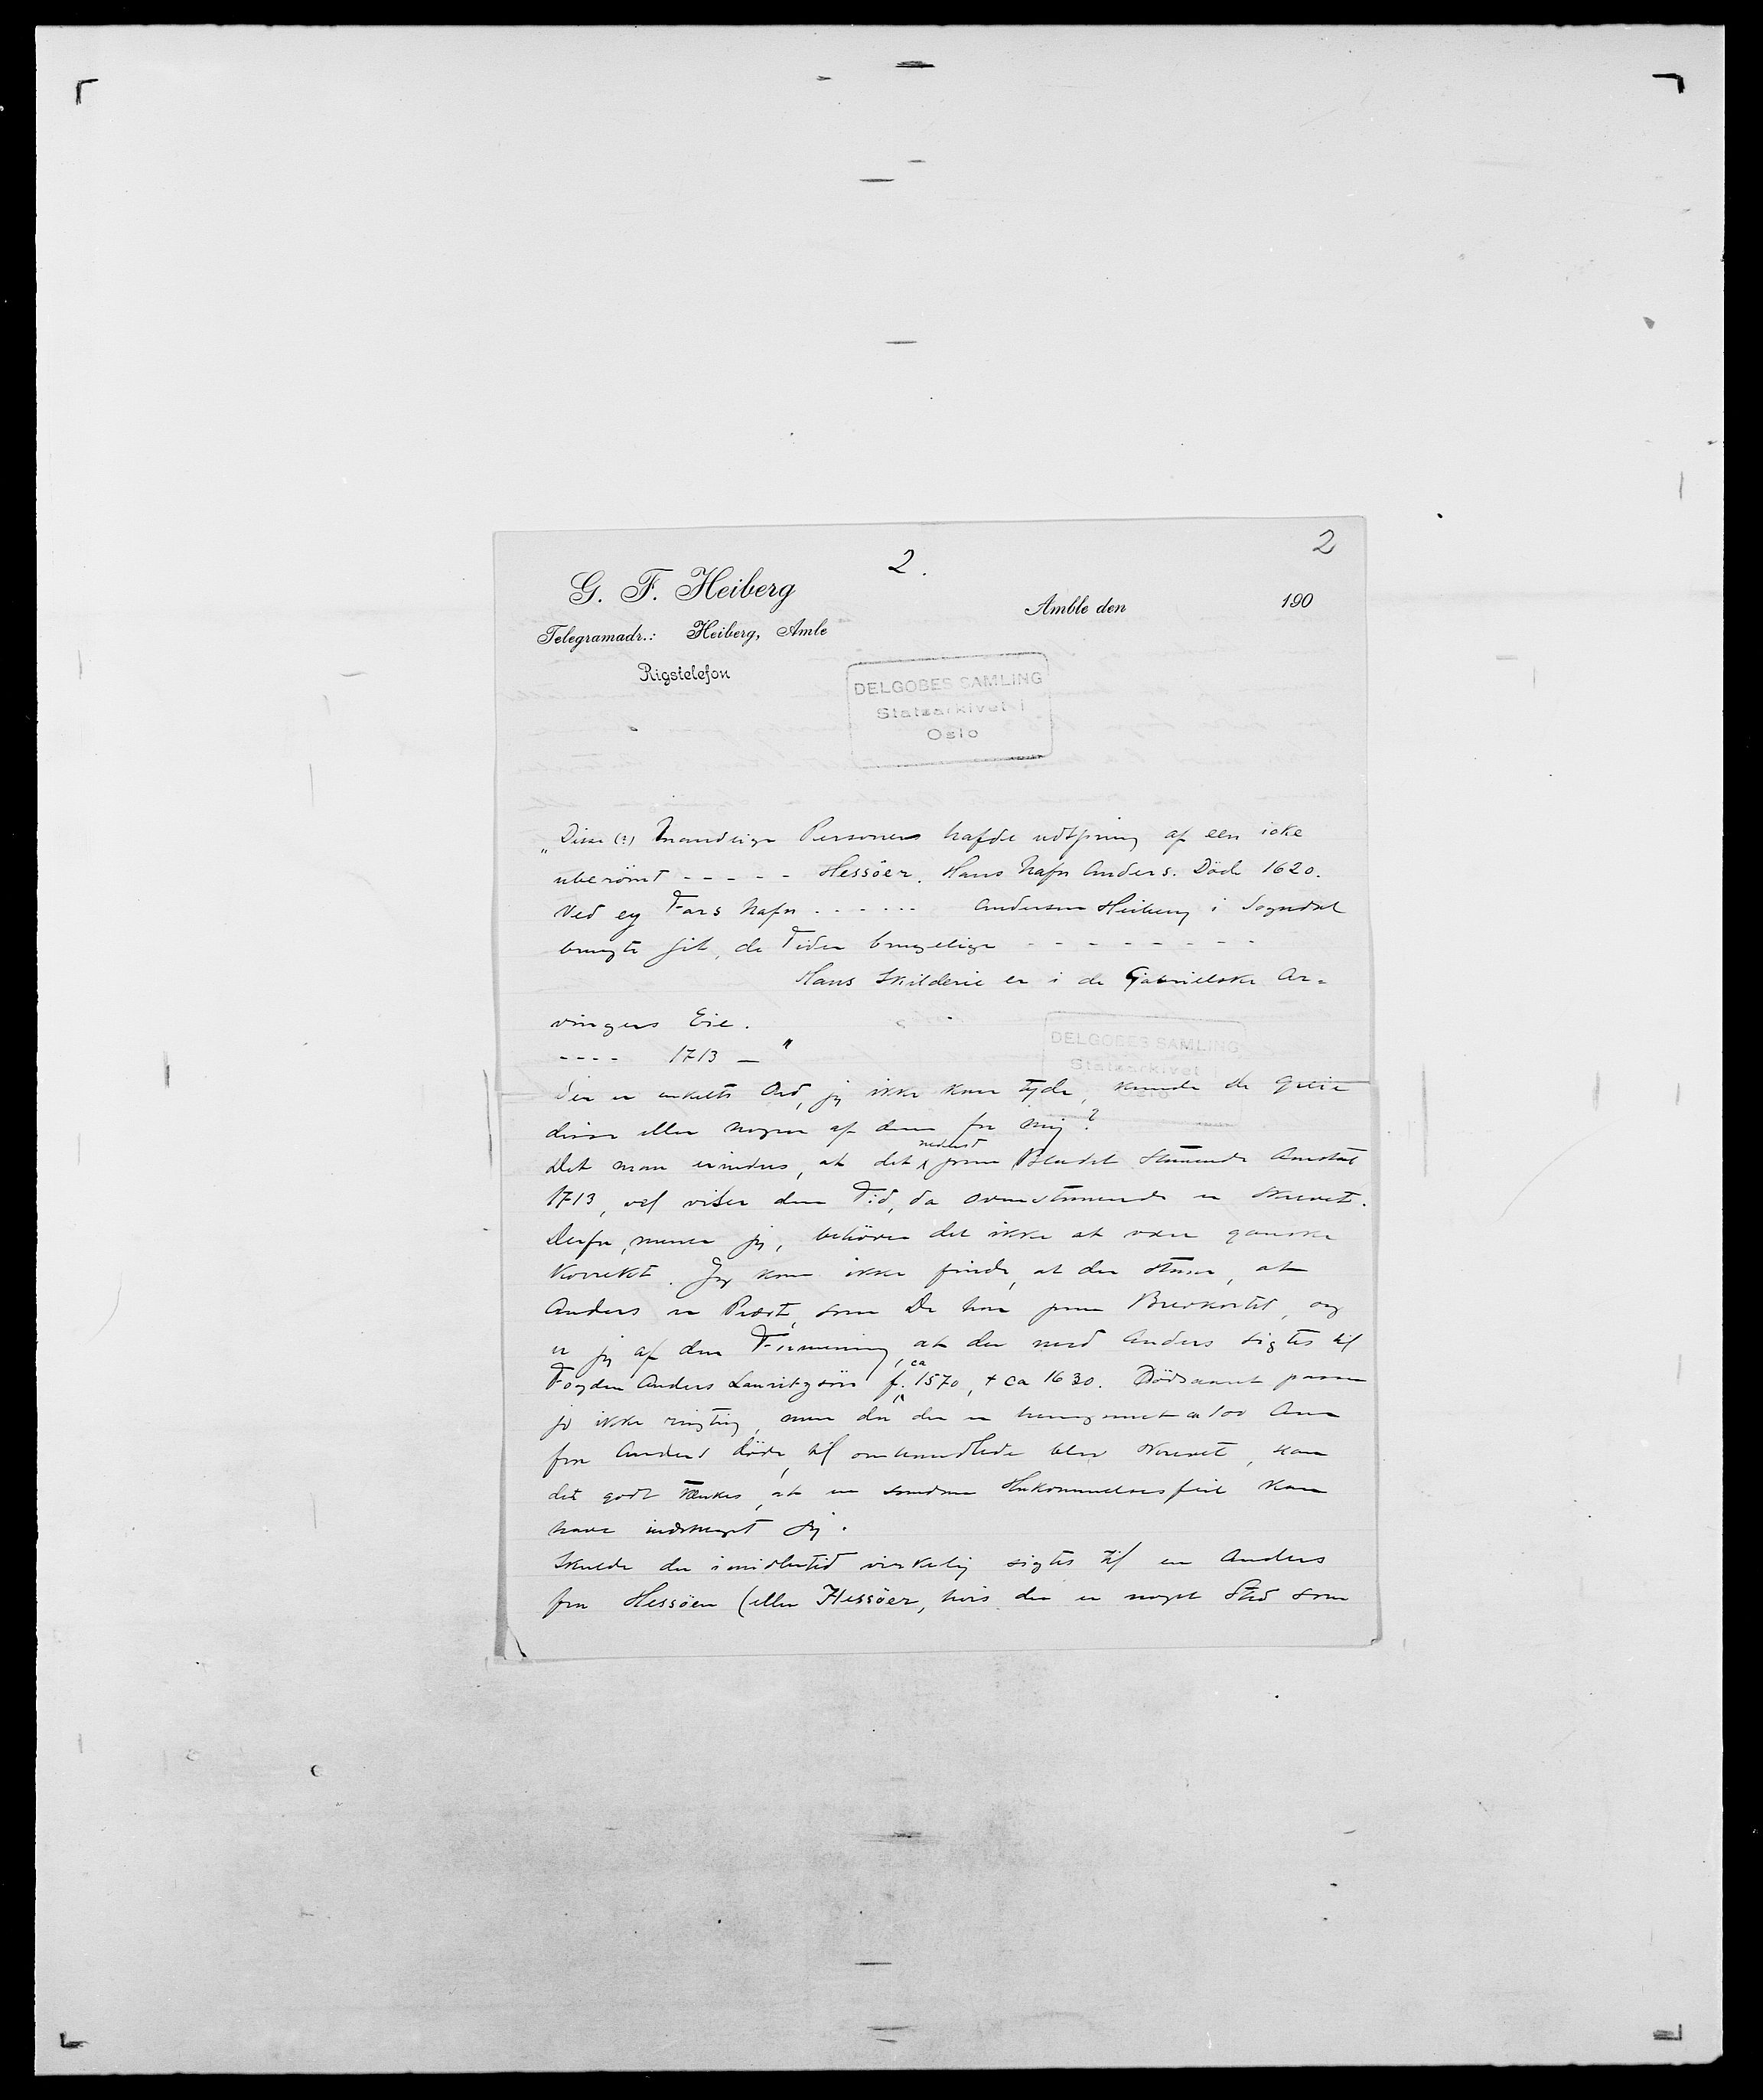 2
2.
G. F. Heiberg
Amble den 190
Telegramadr.: Heiberg, Amle
Rigstelefon
DELGOBES SAMLING
Statsarkivet i
Oslo
„Disse (?) Personer hafde udspring af een icke
uberömt - - - - - Hessöer. Hans Nafn Anders. Död 1620.
Ved ey Fars Nafn - - - - - - Andersen Heiberg i Sogndal
brugte sit, de Tider brugelige - - - - - - - -
Hans Skilderie er i de Gabrielske Ar-
vingers Eie.
- - - - 1713 — "
DELGOBES SAMLING
Statsarkivet i
Oslo
Der er enkelte Ord, jeg ikke kan tyde, kunde De greie
disse eller nogen af dem for mig?
Det maa erindres, at det nederst paa Bladet staaende Aarstal
1713, vel viser den Tid, da ovenstaaende er skrevet.
Derfor, mener jeg, behöver det ikke at være ganske
korrekt. Jeg kan ikke finde, at der staar, at
Anders er Præst, som De har paa Brevkortet, og
er jeg af den Formening, at der med Anders sigtes til
Fogden Anders Lauritzsön f. ca 1570, + ca 1630. Dödsaaret passer
jo ikke rigtig, men da der er hengaaet ca 100 Aar
fra Anders döde, til omhandlede blev skrevet, kan
det godt tænkes, at en saadan Hukommelsesfeil kan
have indsneget sig.
Skulde der imidlertid virkelig sigtes til en Anders
fra Hessöen (eller Hessöer, hvis der er noget Sted som